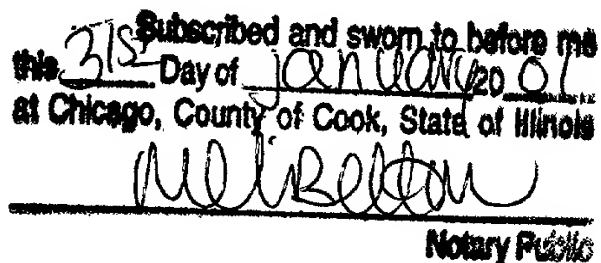 Subscribed and sworn to before me
this 31st Day of January 20 01
at Chicago, County of Cook, State of Illinois
Notary Public